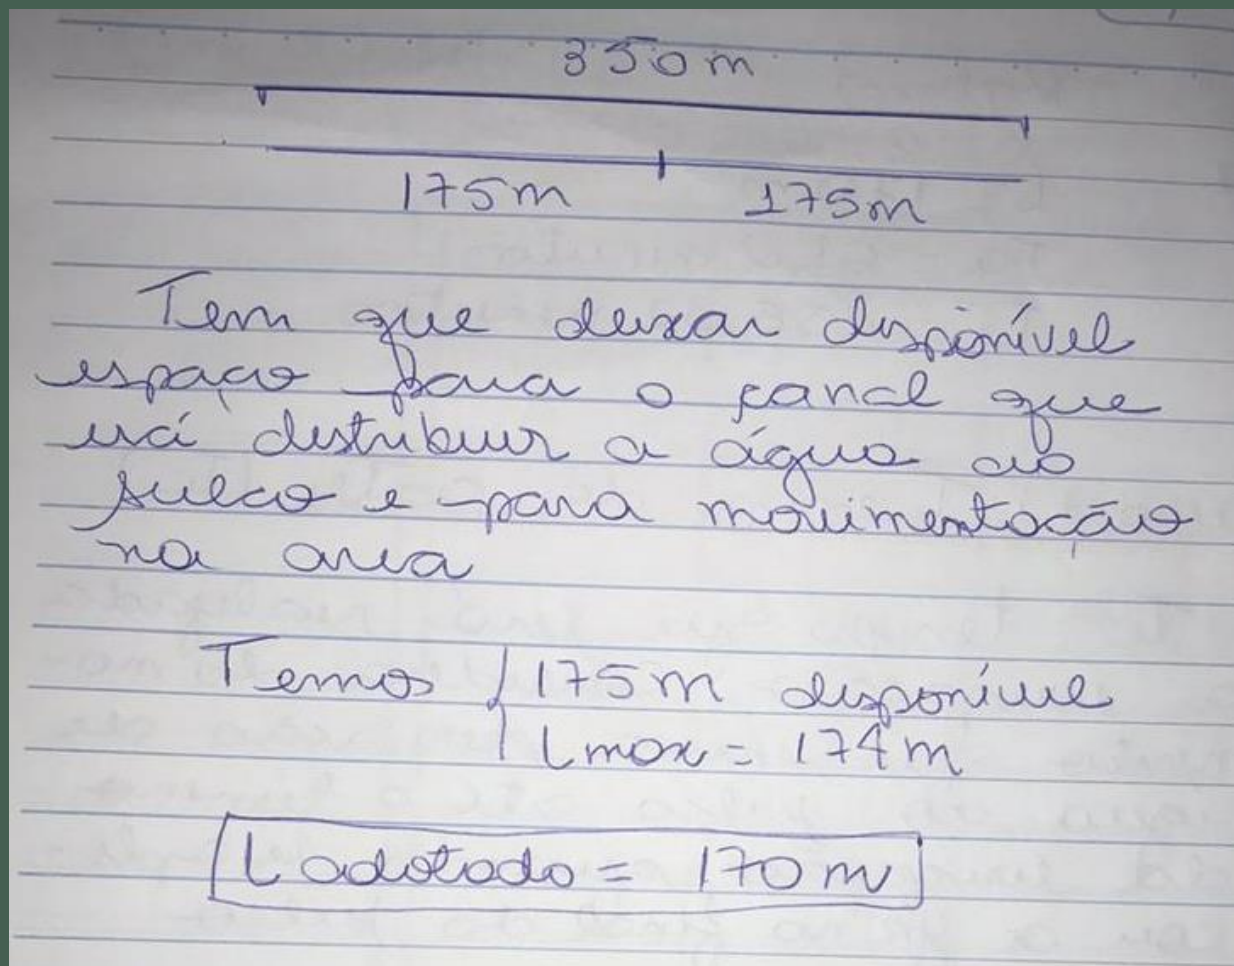 350m
175m 175m
Tem que deixar disponível
espaço para o canal que
irá distribuir a água ao
sulco e para movimentação
na area
Temos 175m disponível
Lmax = 174m
L adotado = 170m